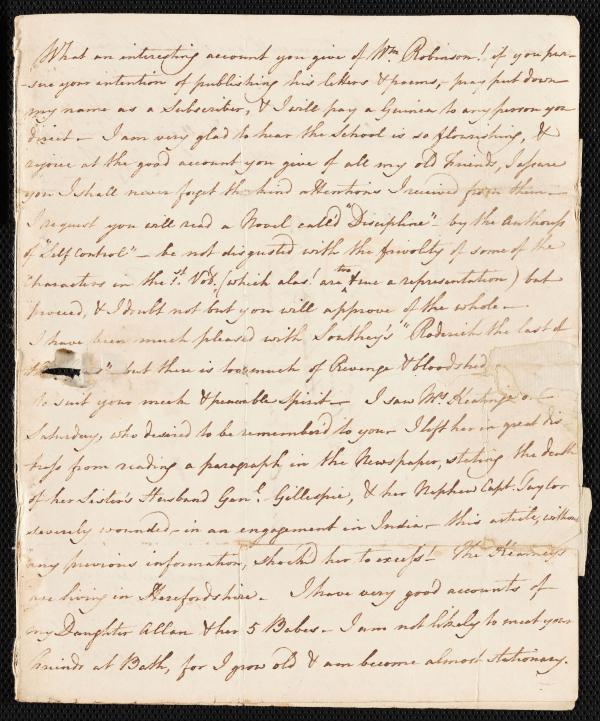 What an interesting account you give of Wm. Robinson! if you pur-
-sue your intention of publishing his letters & poems, - pray put down
my name as a Subscriber, & I will pay a Guinea to any person you
direct - I am very glad to hear the School is so flourishing, &
rejoice at the good account you give of all my old friends, I assure
you I shall never forget the kind attentions I received from them -
I request you will read a Novel called "Discipline" - by the Authoress
of "Self Control" - be not disgusted with the frivolity of some of the
Characters in the 1st. Vol. (which alas! are too true a representation) but
proceed, & I doubt not but you will approve of the whole -
I have been much pleased with Southey's "Roderick the last of
but there is too much of Revenge & bloodshed
to suit your meek & peaceable Spirit - I saw Mrs Keatinge on
Saturday, who desired to be rememberd to you - I left her in great dis
tress from reading a paragraph in the Newspaper, stating the death
of her Sister's Husband Genl. Gillespie, & her Nephew Capt. Taylor
severely wounded - in an engagement in India - this article, without
any previous information, shocked her to excess! The Kearneys
are living in Herefordshire - I have very good accounts of
my Daughter Allan & her 5 Babes - I am not likely to meet your
friends at Bath, for I grow old & am become almost stationary.